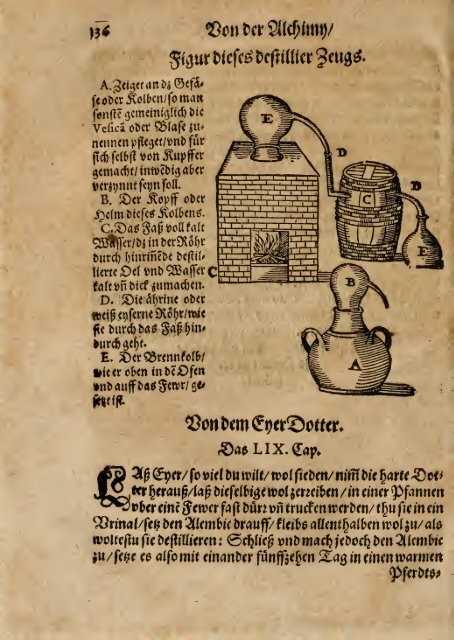 136 Von der Alchimy/
Figur dieses destillier Zeugs.
A. Zeiget an dz Gefä-
se oder Kolben/so man
sonstē gemeiniglich die
Vesicā oder Blase zu-
nennen pfleget/vnd für
sich selbst von Kupffer
gemacht/inwēdig aber
verzynnt seyn soll.
B. Der Kopff oder
Helm dieses Kolbens.
C. Das Faß voll kalt
Wasser/dz in der Röhr
durch hin die destil-
lierte Oel vnd Wasser
kalt vñ dick zumachen.
D. Die ährine oder
weiß eyserne Röhr/wie
sie durch das Faß hin-
durch geht.
E. Der Brennkolb/
wie er oben in dē Ofen
vnd auff das Fewr/ ge-
setzt ist.
E
D
C
D
E
C
B
A
Von dem Eyer Dotter.
Das LIX. Cap.
LAß Eyer/ so viel du wilt/ wol sieden/ nim̄ die harte Dot-
ter herauß/ laß dieselbige wol zerreiben/ in einer Pfannen
vber einē Fewer fast dürꝛ vñ trucken werden/ thu sie in ein
Vrinal/ setz den Alembic drauff/ kleibs allenthalben wol zu/ als
woltestu sie destillieren: Schließ vnd mach jedoch den Alembic
zu/ setze es also mit einander fünffzehen Tag in einen warmen
Pferdts-